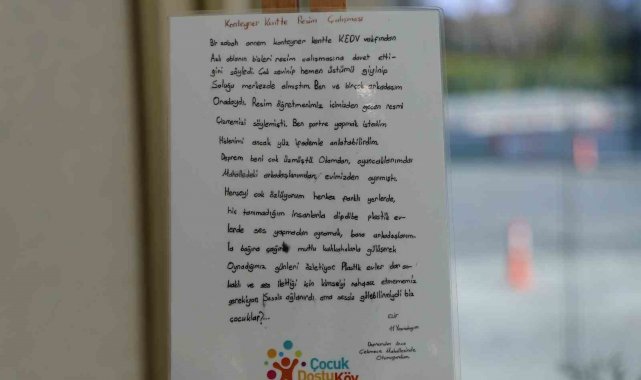 Konteyner Kentte Resim Çalışması
Bir sabah annem konteyner kentte KEDV vakfından
Aslı ablanın bizleri resim çalışmasına davet etti-
ğini söyledi. Çok sevinip hemen üstümü giyinip
Soluğu merkezde almıştım. Ben ve birçok arkadaşım
Oradaydı. Resim öğretmenimiz içimizden geçen resmi
Çizmemizi söylemişti. Ben portre yapmak istedim
Hislerimi ancak yüz ifademle anlatabilirdim.
Deprem beni çok üzmüştü. Odamdan, oyuncaklarımdan
Mahalledeki arkadaşlarımdan, evimizden ayırmıştı.
Herşeyi çok özlüyorum herkes farklı yerlerde,
hiç tanımadığım insanlarla dipdibe plastik ev-
lerde ses yapmadan oynamak, bana arkadaşlarım-
la bağıra çağıra mutlu kahkahalarla gülüşerek
Oynadığımız günleri özletiyor. Plastik evler dar so-
kaklı ve ses ilettiği için kimseyi rahatsız etmememiz
gerekiyor. Sessiz ağlanırdı, ama sessiz gülebilirmiydi biz
çocuklar?...
11 Yaşındayım
Çekmece Mahallesinde
Oturuyordum.
Çocuk
Dostu Köy